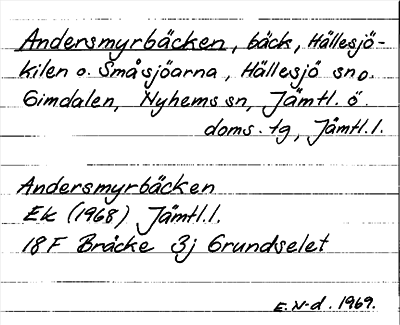 Andersmyrbäcken, bäck, Hällesjö-
kilen o. Småsjöarna, Hällesjö sn o.
Gimdalen, Nyhems sn, Jämtl. ö.
doms. tg, Jämtl. l.
Andersmyrbäcken
Ek (1968) Jämtl. l.
18F Bräcke 3j Grundselet
E. N-d. 1969.